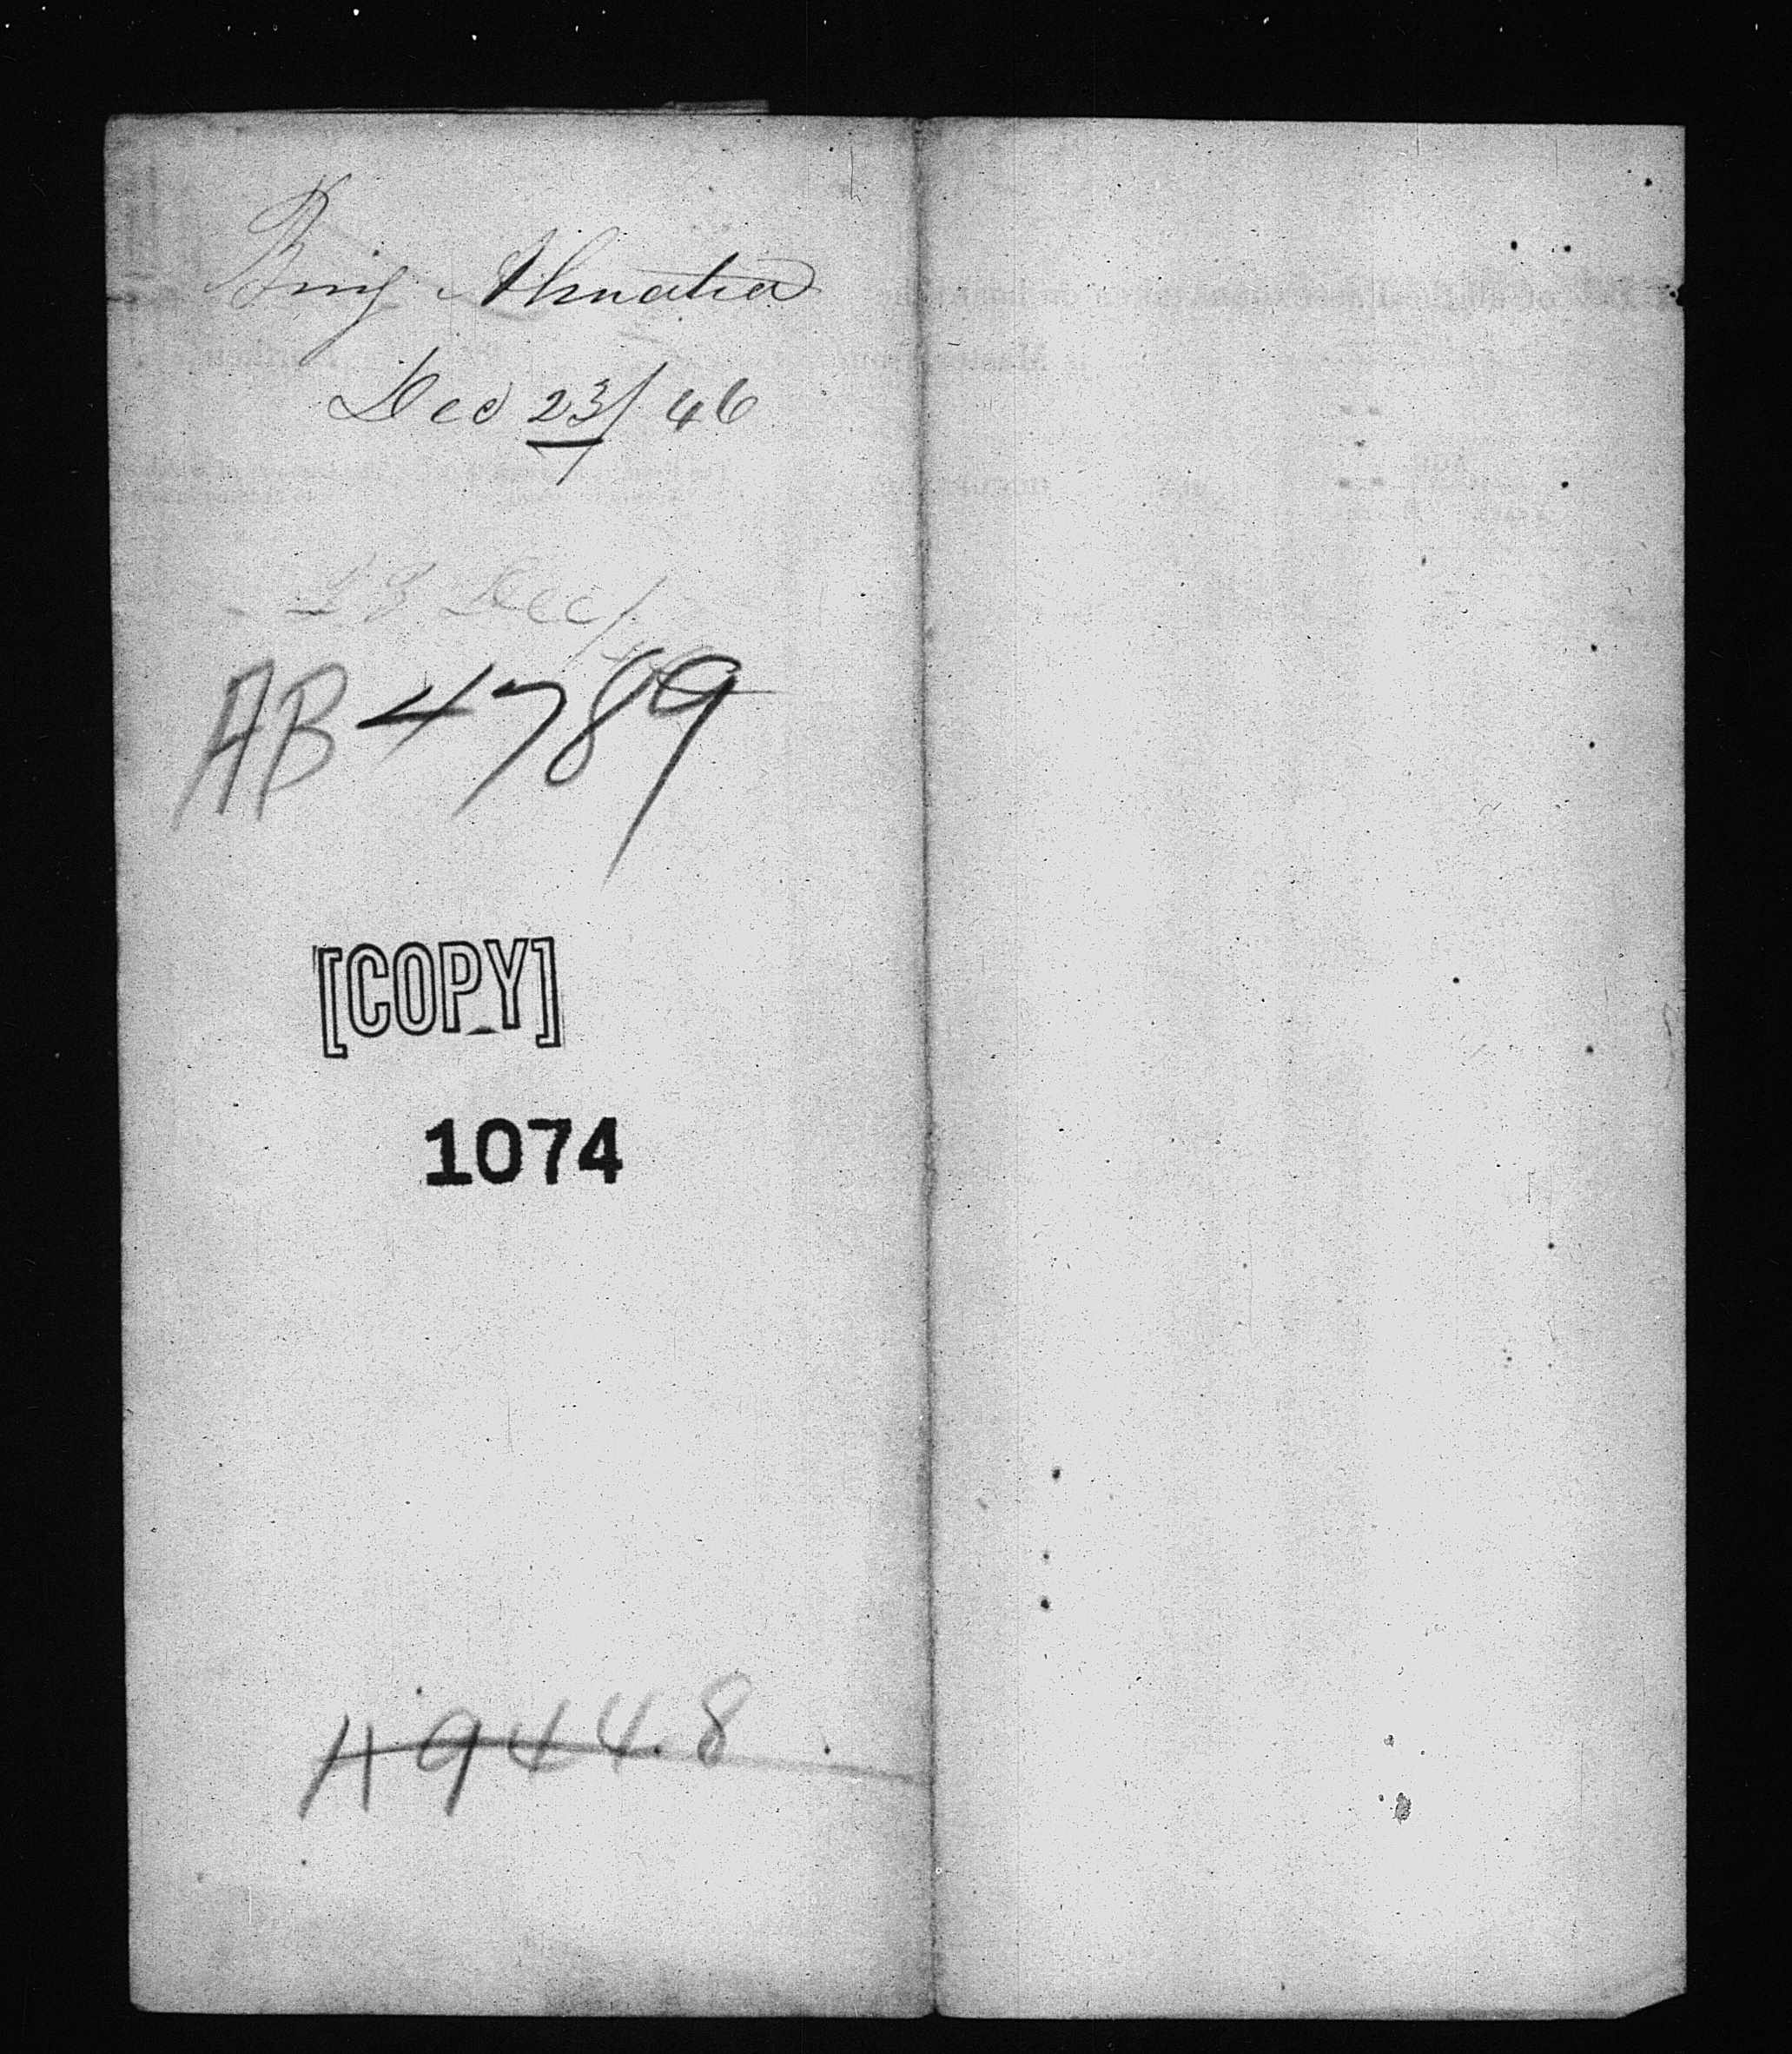 Brig Almatia
Dec 23/46
23 Dec/
AB 4789
[COPY]
1074
A 944.8